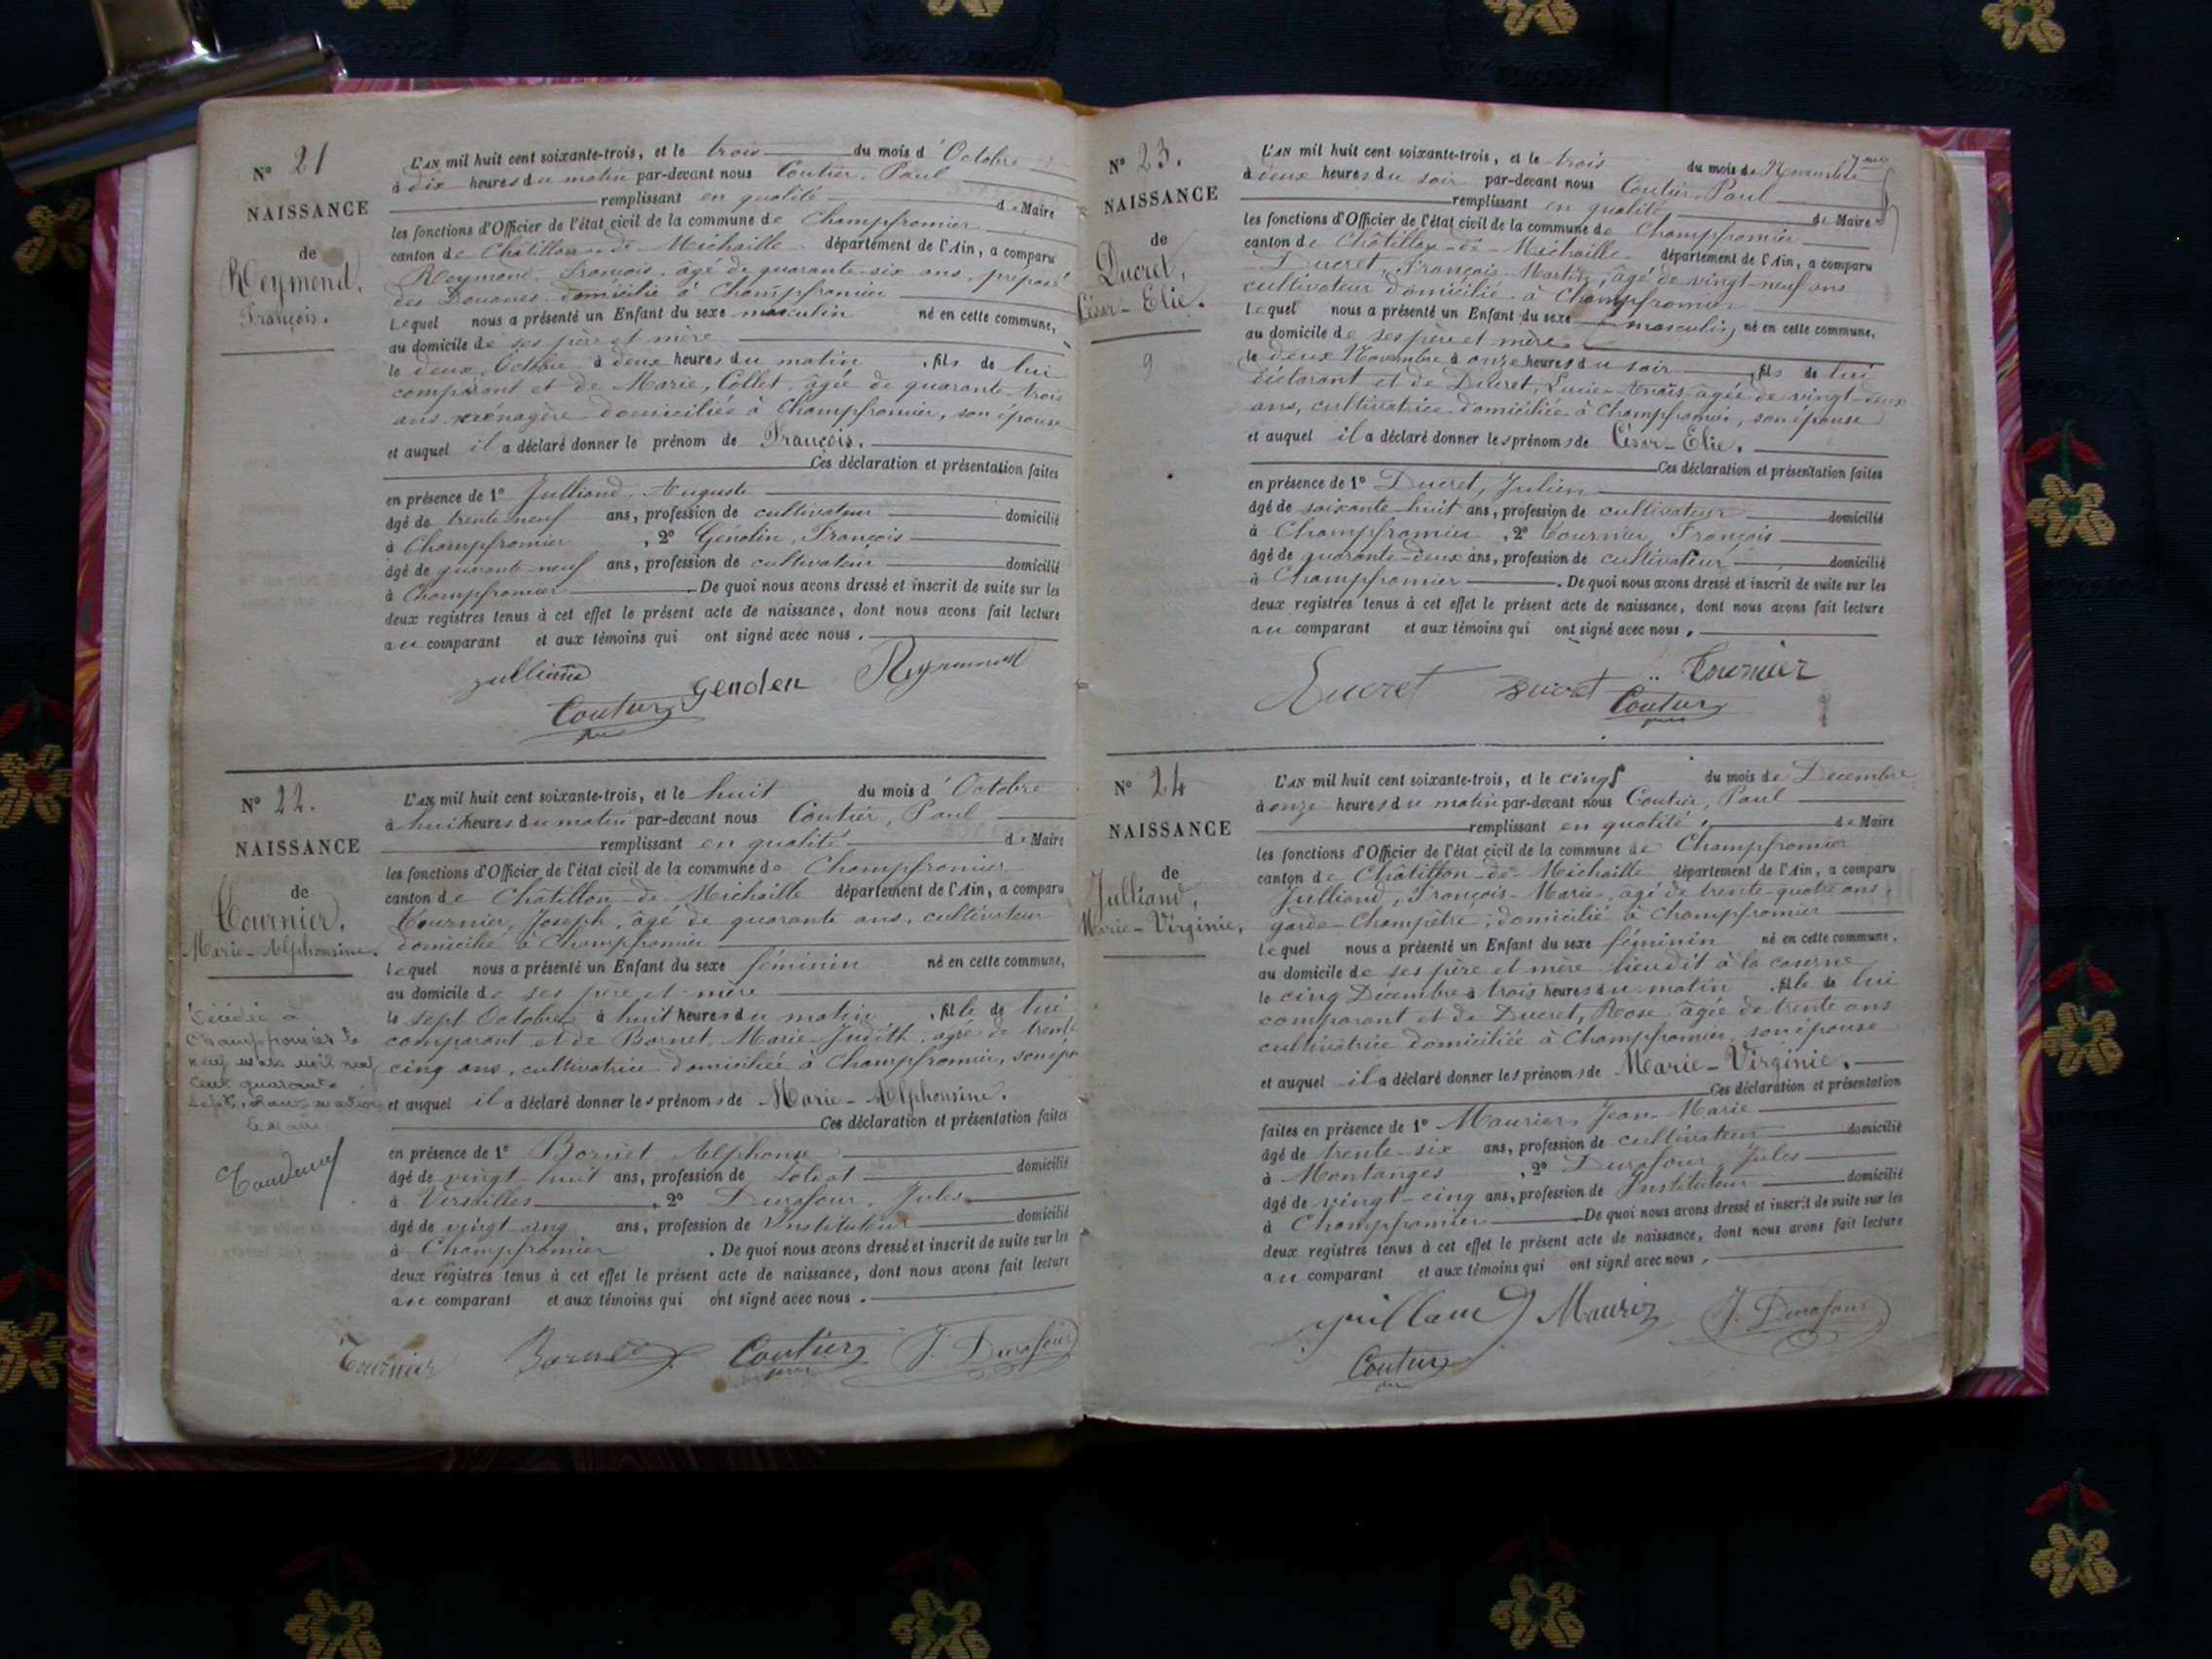 N° 21
NAISSANCE
de
Reymond,
François.
L'AN mil huit cent soixante-trois, et le trois du mois d'Octobre
à dix heures du matin par-devant nous Coutier, Paul
remplissant en qualité de Maire
les fonctions d'Officier de l'état civil de la commune de Champfromier
canton de Châtillon-de-Michaille département de l'Ain, a comparu
Reymond, François, âgé de quarante-six ans, préposé
des Douanes domicilié à Champfromier
Lequel nous a présenté un Enfant du sexe masculin né en cette commune,
au domicile de ses père et mère
le deux Octobre à deux heures du matin, fils de lui
comparant et de Marie, Collet, âgée de quarante-trois
ans ménagère domiciliée à Champfromier, son épouse
et auquel il a déclaré donner le prénom de François.
Ces déclaration et présentation faites
en présence de 1° Julliand, Auguste
âgé de trente-neuf ans, profession de cultivateur domicilié
à Champfromier, 2° Génolin, François
âgé de quarante-neuf ans, profession de cultivateur domicilié
à Champfromier. De quoi nous avons dressé et inscrit de suite sur les
deux registres tenus à cet effet le présent acte de naissance, dont nous avons fait lecture
au comparant et aux témoins qui ont signé avec nous.
Julliand
Genolen
Reymond
Coutier
N° 22.
NAISSANCE
de
Tournier,
Marie-Alphonsine.
Décédée à
Champfromier le
neuf mars mil neuf
cent quarante
sept.
Le Maire
L'AN mil huit cent soixante-trois, et le huit du mois d'Octobre
à huit heures du matin par-devant nous Coutier, Paul
remplissant en qualité de Maire
les fonctions d'Officier de l'état civil de la commune de Champfromier
canton de Châtillon-de-Michaille département de l'Ain, a comparu
Tournier, Joseph, âgé de quarante ans, cultivateur
domicilié à Champfromier
Lequel nous a présenté un Enfant du sexe féminin né en cette commune,
au domicile de ses père et mère
le sept Octobre à huit heures du matin, fille de lui
comparant et de Bornet, Marie-Judith, âgée de trente
cinq ans, cultivatrice domiciliée à Champfromier, son épou
et auquel il a déclaré donner les prénoms de Marie-Alphonsine.
Ces déclaration et présentation faites
en présence de 1° Bornet Alphonse
âgé de vingt-huit ans, profession de Soldat domicilié
à Versailles, 2° Durafour, Jules
âgé de vingt-cinq ans, profession de Instituteur domicilié
à Champfromier. De quoi nous avons dressé et inscrit de suite sur les
deux registres tenus à cet effet le présent acte de naissance, dont nous avons fait lecture
au comparant et aux témoins qui ont signé avec nous.
Tournier
Bornet
Coutier
J. Durafour
N° 23.
NAISSANCE
de
Ducret,
César-Elie.
9
L'AN mil huit cent soixante-trois, et le trois du mois de Novembre
à deux heures du soir par-devant nous Coutier, Paul
remplissant en qualité de Maire
les fonctions d'Officier de l'état civil de la commune de Champfromier
canton de Châtillon-de-Michaille département de l'Ain, a comparu
Ducret, François-Martin, âgé de vingt-neuf ans
cultivateur domicilié à Champfromier
Lequel nous a présenté un Enfant du sexe masculin, né en cette commune,
au domicile de ses père et mère
le deux Novembre à onze heures du soir, fils de lui
déclarant et de Ducret, Lucie-Anaïs âgée de vingt-deux
ans, cultivatrice domiciliée à Champfromier, son épouse
et auquel il a déclaré donner les prénoms de César-Elie.
Ces déclaration et présentation faites
en présence de 1° Ducret, Julien
âgé de soixante-huit ans, profession de cultivateur domicilié
à Champfromier, 2° Tournier, François
âgé de quarante-deux ans, profession de cultivateur domicilié
à Champfromier. De quoi nous avons dressé et inscrit de suite sur les
deux registres tenus à cet effet le présent acte de naissance, dont nous avons fait lecture
au comparant et aux témoins qui ont signé avec nous.
Ducret
Ducret
Tournier
Coutier
N° 24
NAISSANCE
de
Julliand,
Marie-Virginie,
L'AN mil huit cent soixante-trois, et le cinq du mois de Décembre
à onze heures du matin par-devant nous Coutier, Paul
remplissant en qualité, de Maire
les fonctions d'Officier de l'état civil de la commune de Champfromier
canton de Châtillon-de-Michaille département de l'Ain, a comparu
Julliand, François-Marie, âgé de trente-quatre ans,
garde-Champêtre, domicilié à Champfromier
Lequel nous a présenté un Enfant du sexe féminin né en cette commune,
au domicile de ses père et mère lieudit à la caserne
le cinq Décembre à trois heures du matin, fille de lui
comparant et de Ducret, Rose âgée de trente ans
cultivatrice domiciliée à Champfromier son épouse
et auquel il a déclaré donner les prénoms de Marie-Virginie.
Ces déclaration et présentation
faites en présence de 1° Maurier, Jean-Marie
âgé de trente-six ans, profession de cultivateur domicilié
à Montanges, 2° Durafour, Jules
âgé de vingt-cinq ans, profession de Instituteur domicilié
à Champfromier. De quoi nous avons dressé et inscrit de suite sur les
deux registres tenus à cet effet le présent acte de naissance, dont nous avons fait lecture
au comparant et aux témoins qui ont signé avec nous,
Juilland
Maurier
J. Durafour
Coutier